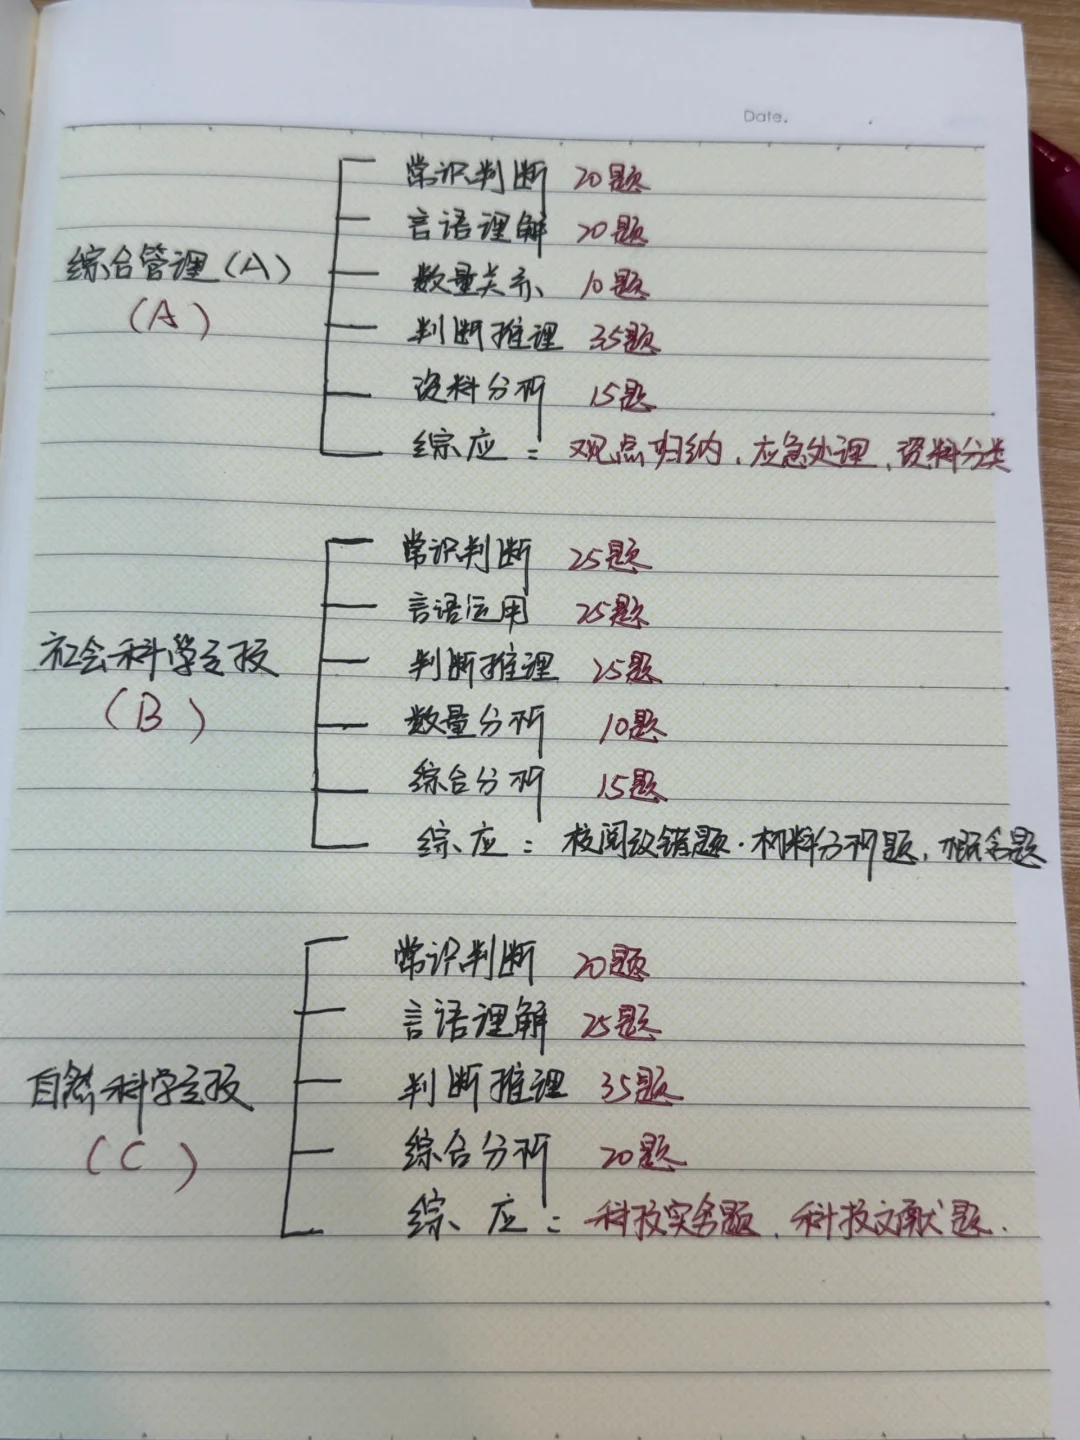 Date.
常识判断 20题
言语理解 20题
综合管理(A)
(A)
数量关系 10题
判断推理 35题
资料分析 15题
综应: 观点归纳、应急处理、资料分类
常识判断 25题
言语运用 25题
社会科学专技
(B)
判断推理 25题
数量分析 10题
综合分析 15题
综应: 校阅改错题、材料分析题、概念题
常识判断 20题
言语理解 25题
自然科学专技
(C)
判断推理 35题
综合分析 20题
综应: 科技实务题、科技文献题.